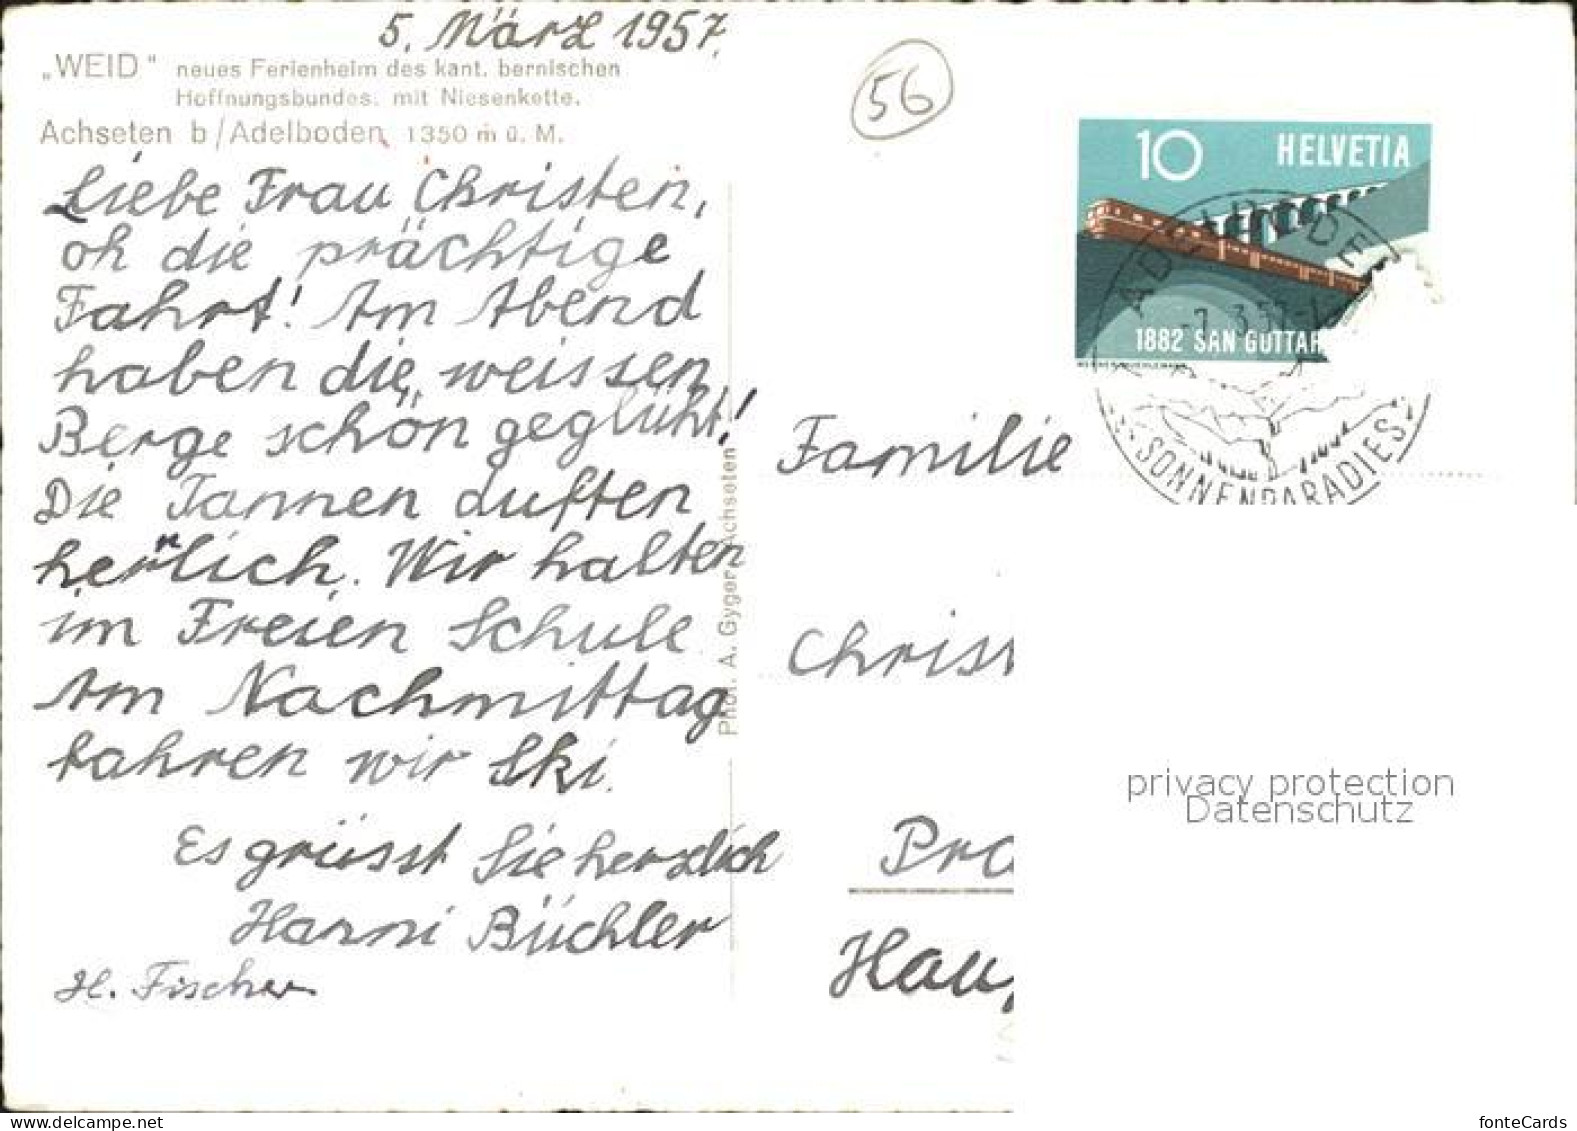 5. März 1957.
„WEID" neues Ferienheim des kant. bernischen
Hoffnungsbundes. mit Niesenkette.
Achseten b/Adelboden 1350 m ü. M.
Liebe Frau Christen,
oh die prächtige
Fahrt! Am Abend
haben die weissen
Berge schön geglüht!
Die Tannen duften
herrlich. Wir halten
im Freien Schule
Am Nachmittag
fahren wir Ski.
Es grüsst Sie herzlich
Hanni Büchler
H. Fischer
Phot. A. Gyger, Achseten
56
10 HELVETIA
1882 SAN GOTTAR
ADELBODEN
SONNENPARADIES
Familie
Christ
Pra
Hau
privacy protection
Datenschutz
fonteCards